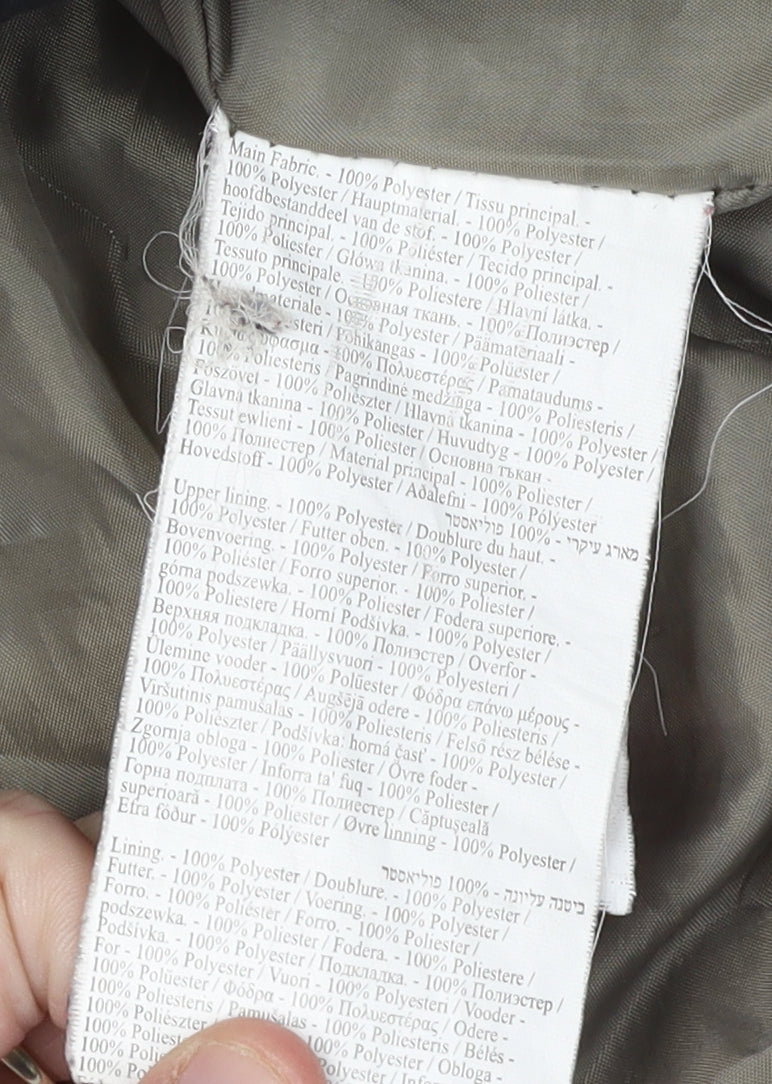 Main Fabric. - 100% Polyester / Tissu principal. -
100% Polyester / Hauptmaterial. - 100% Polyester /
hoofdbestanddeel van de stof. - 100% Polyester /
Tejido principal. - 100% Poliéster / Tecido principal. -
100% Poliester / Główa tkanina. - 100% Poliester /
Tessuto principale. - 100% Poliestere / Hlavní látka. -
100% Polyester / Основная ткань. - 100% Полиэстер /
ateriale - 100% Polyester / Päämateriaali -
steri / Põhikangas - 100% Polüester /
φασμα - 100% Πολυεστέρας / Pamataudums -
100% Poliesteris / Pagrindinė medžinga - 100% Poliesteris /
Főszövet - 100% Poliészter / Hlavná tkanina - 100% Polyester /
Glavna tkanina - 100% Poliester / Huvudtyg - 100% Polyester /
Tessut ewlieni - 100% Poliester / Основна тъкан -
100% Полиестер / Material principal - 100% Poliester /
Hovedstoff - 100% Polyester / Aðalefni - 100% Pólýester
מארג עיקרי - 100% פוליאסטר
Upper lining. - 100% Polyester / Doublure du haut. -
100% Polyester / Futter oben. - 100% Polyester /
Bovenvoering. - 100% Polyester / Forro superior. -
100% Poliéster / Forro superior. - 100% Poliester /
górna podszewka. - 100% Poliester / Fodera superiore. -
100% Poliestere / Horní Podšívka. - 100% Polyester /
Верхняя подкладка. - 100% Полиэстер / Overfor -
100% Polyester / Päällysvuori - 100% Polyesteri /
Ülemine vooder - 100% Polüester / Φόδρα επάνω μέρους -
100% Πολυεστέρας / Augšējā odere - 100% Poliesteris /
Viršutinis pamušalas - 100% Poliesteris / Felső rész bélése -
100% Poliészter / Podšívka: horná časť - 100% Polyester /
Zgornja obloga - 100% Poliester / Övre foder -
100% Polyester / Inforra ta' fuq - 100% Poliester /
Горна подплата - 100% Полиестер / Căptușeală
superioară - 100% Poliester / Øvre linning - 100% Polyester /
Efra fóður - 100% Pólýester
ביטנה עליונה - 100% פוליאסטר
Lining. - 100% Polyester / Doublure. - 100% Polyester /
Futter. - 100% Polyester / Voering. - 100% Polyester /
Forro. - 100% Poliéster / Forro. - 100% Poliester /
podszewka. - 100% Poliester / Fodera. - 100% Poliestere /
Podšívka. - 100% Polyester / Подкладка. - 100% Полиэстер /
For - 100% Polyester / Vuori - 100% Polyesteri / Vooder -
100% Polüester / Φόδρα - 100% Πολυεστέρας / Odere -
100% Poliesteris / Pamušalas - 100% Poliesteris / Bélés -
100% Poliészter 100% Polyester / Obloga -
100% Poliest 100% Polyester /
100% Po Poliester
100% Polyester